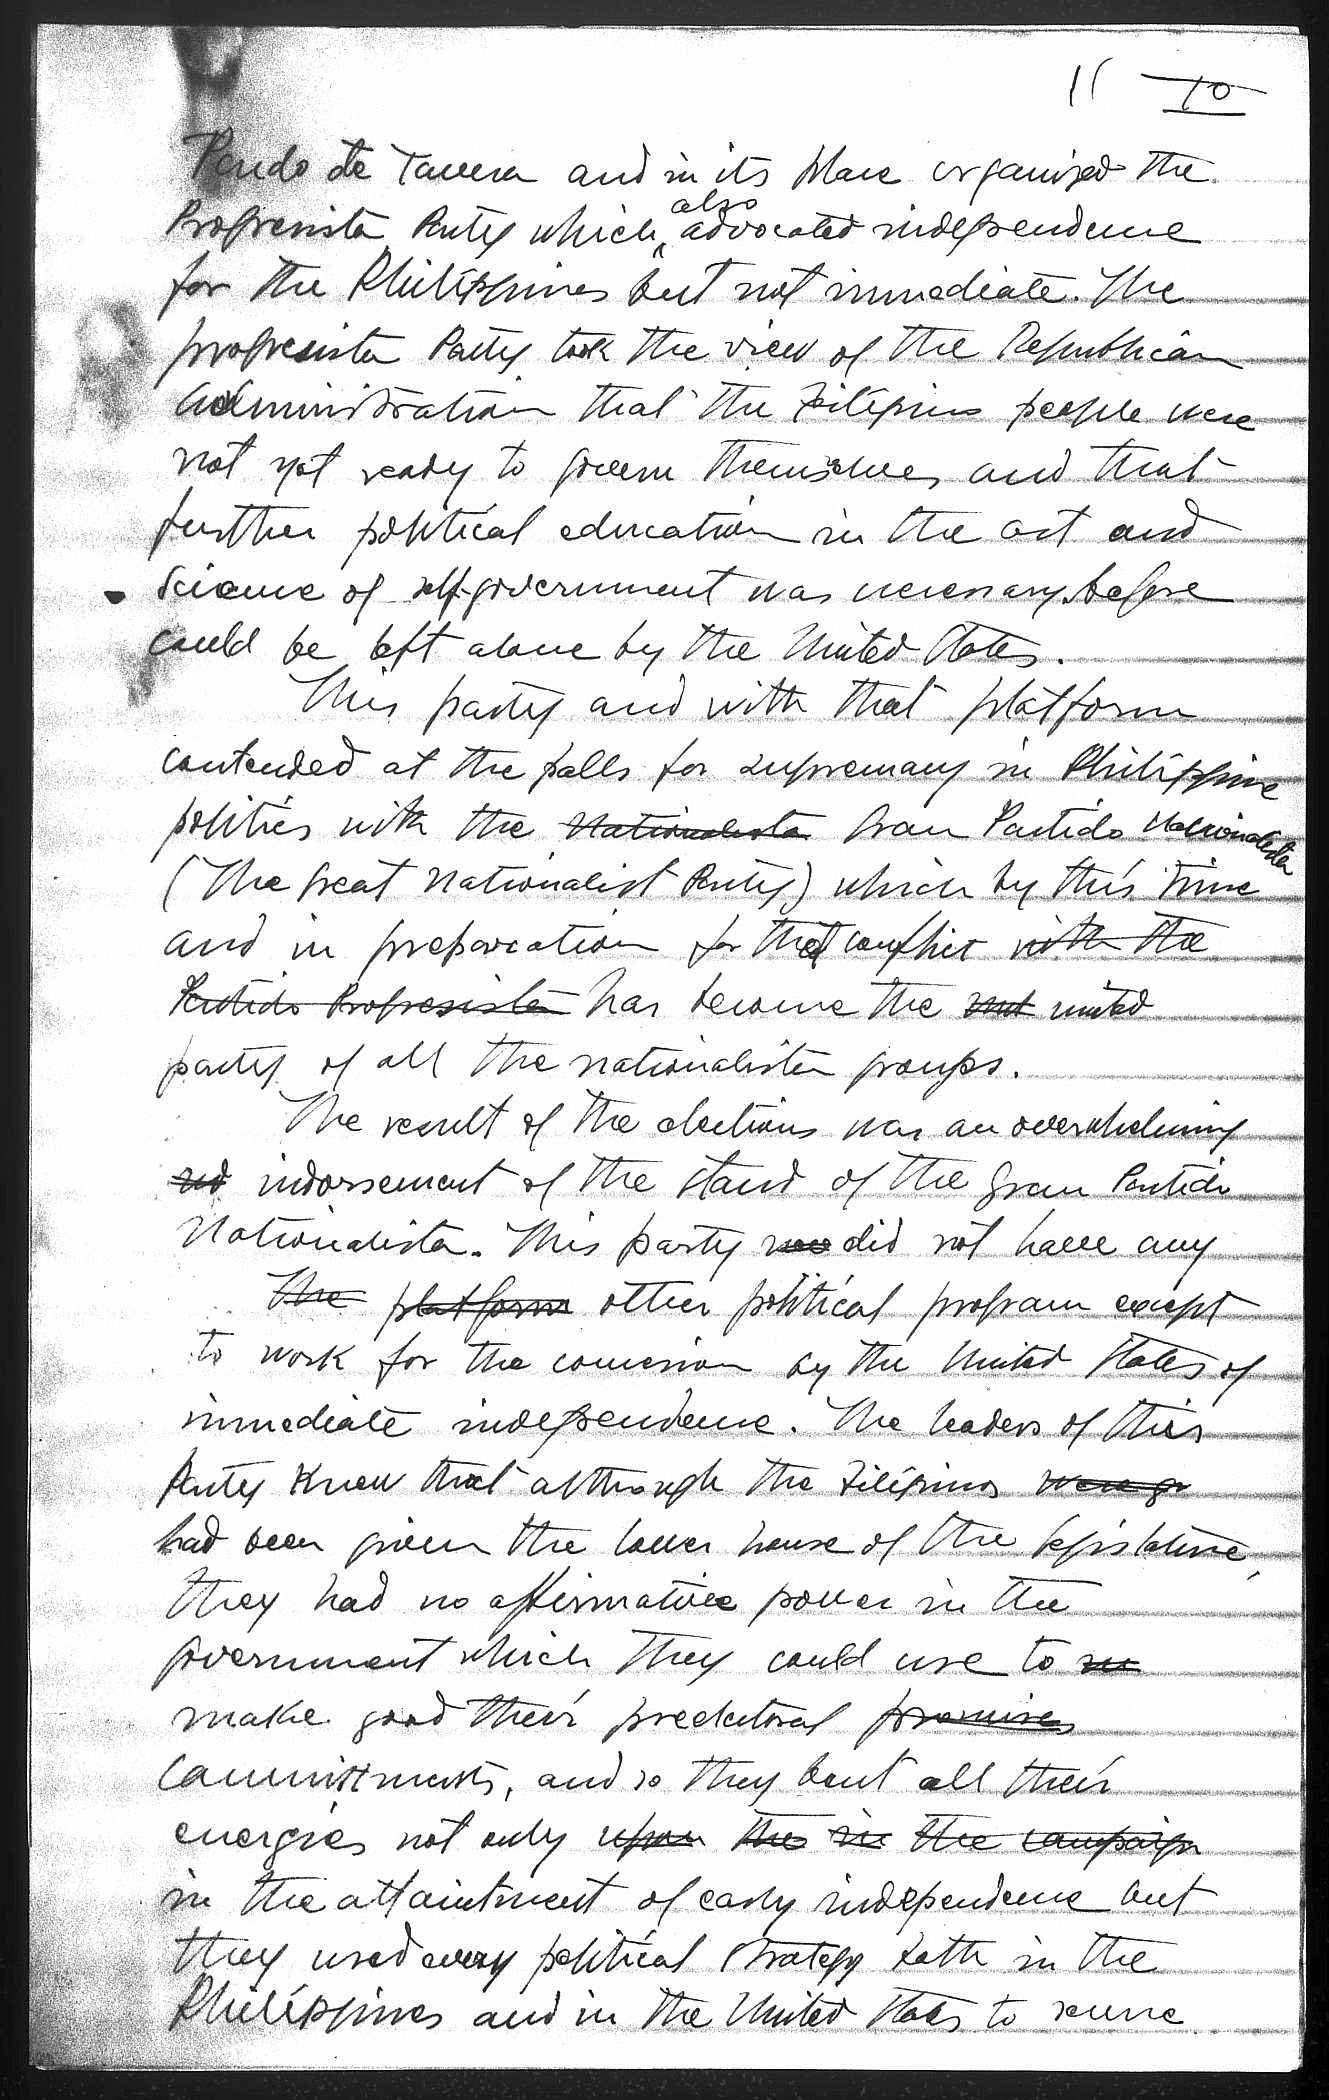 11 10
Pardo de Tavera and in its place organized the
also
Progresista Party which advocated independence
for the Philippines but not immediate. The
progresista Party took the view of the Republican
administration that the Filipino people were
not yet ready to govern themselves and that
further political education in the art and
science of self-government was necessary before
could be left alone by the United States.
This party and with that platform
contended at the polls for supremacy in Philippine
politics with the Nationalista Gran Partido Nacionalista
(The Great Nationalist Party) which by this time
and in preparation for that conflict with the
Partido Progresista has become the united
party of all the nationalista groups.
The result of the elections was an overwhelming
indorsement of the stand of the Gran Partido
Nationalista. This party did not have any
The platform other political program except
to work for the concession by the United States of
immediate independence. The leaders of this
Party knew that although the Filipinos were gi
had been given the lower house of the legislature,
they had no affirmative power in the
government which they could use to
make good their preelectoral promises
committments, and so they bent all their
energies not only upon the in the campaign
in the attaintment of early independence but
they used every political strategy both in the
Philippines and in the United States to secure